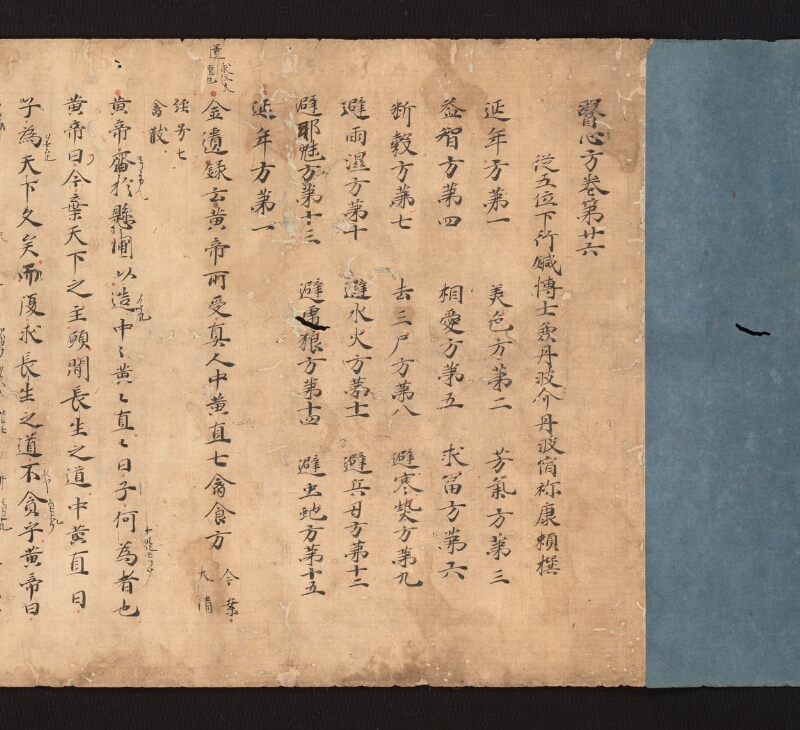 醫心方卷第廿六
從五位下行鍼博士兼丹波介丹波宿祢康頼撰
延年方第一 美色方第二 芳氣方第三
益智方第四 相愛方第五 求冨方第六
斷穀方第七 去三尸方第八 避寒熱方第九
避雨濕方第十 避水火方第十一 避兵刃方第十二
避邪魅方第十三 避虎狼方第十四 避虫蛇方第十五
延年方第一
金遺録云黄帝所受真人中黄直七禽食方
大清
禽散
黄帝齋於懸圃以造中〻黄〻直〻曰子何為者也
黄帝曰今棄天下之主願聞長生之道中黄直曰
子為天下久矣而復求長生之道不貪乎黄帝曰